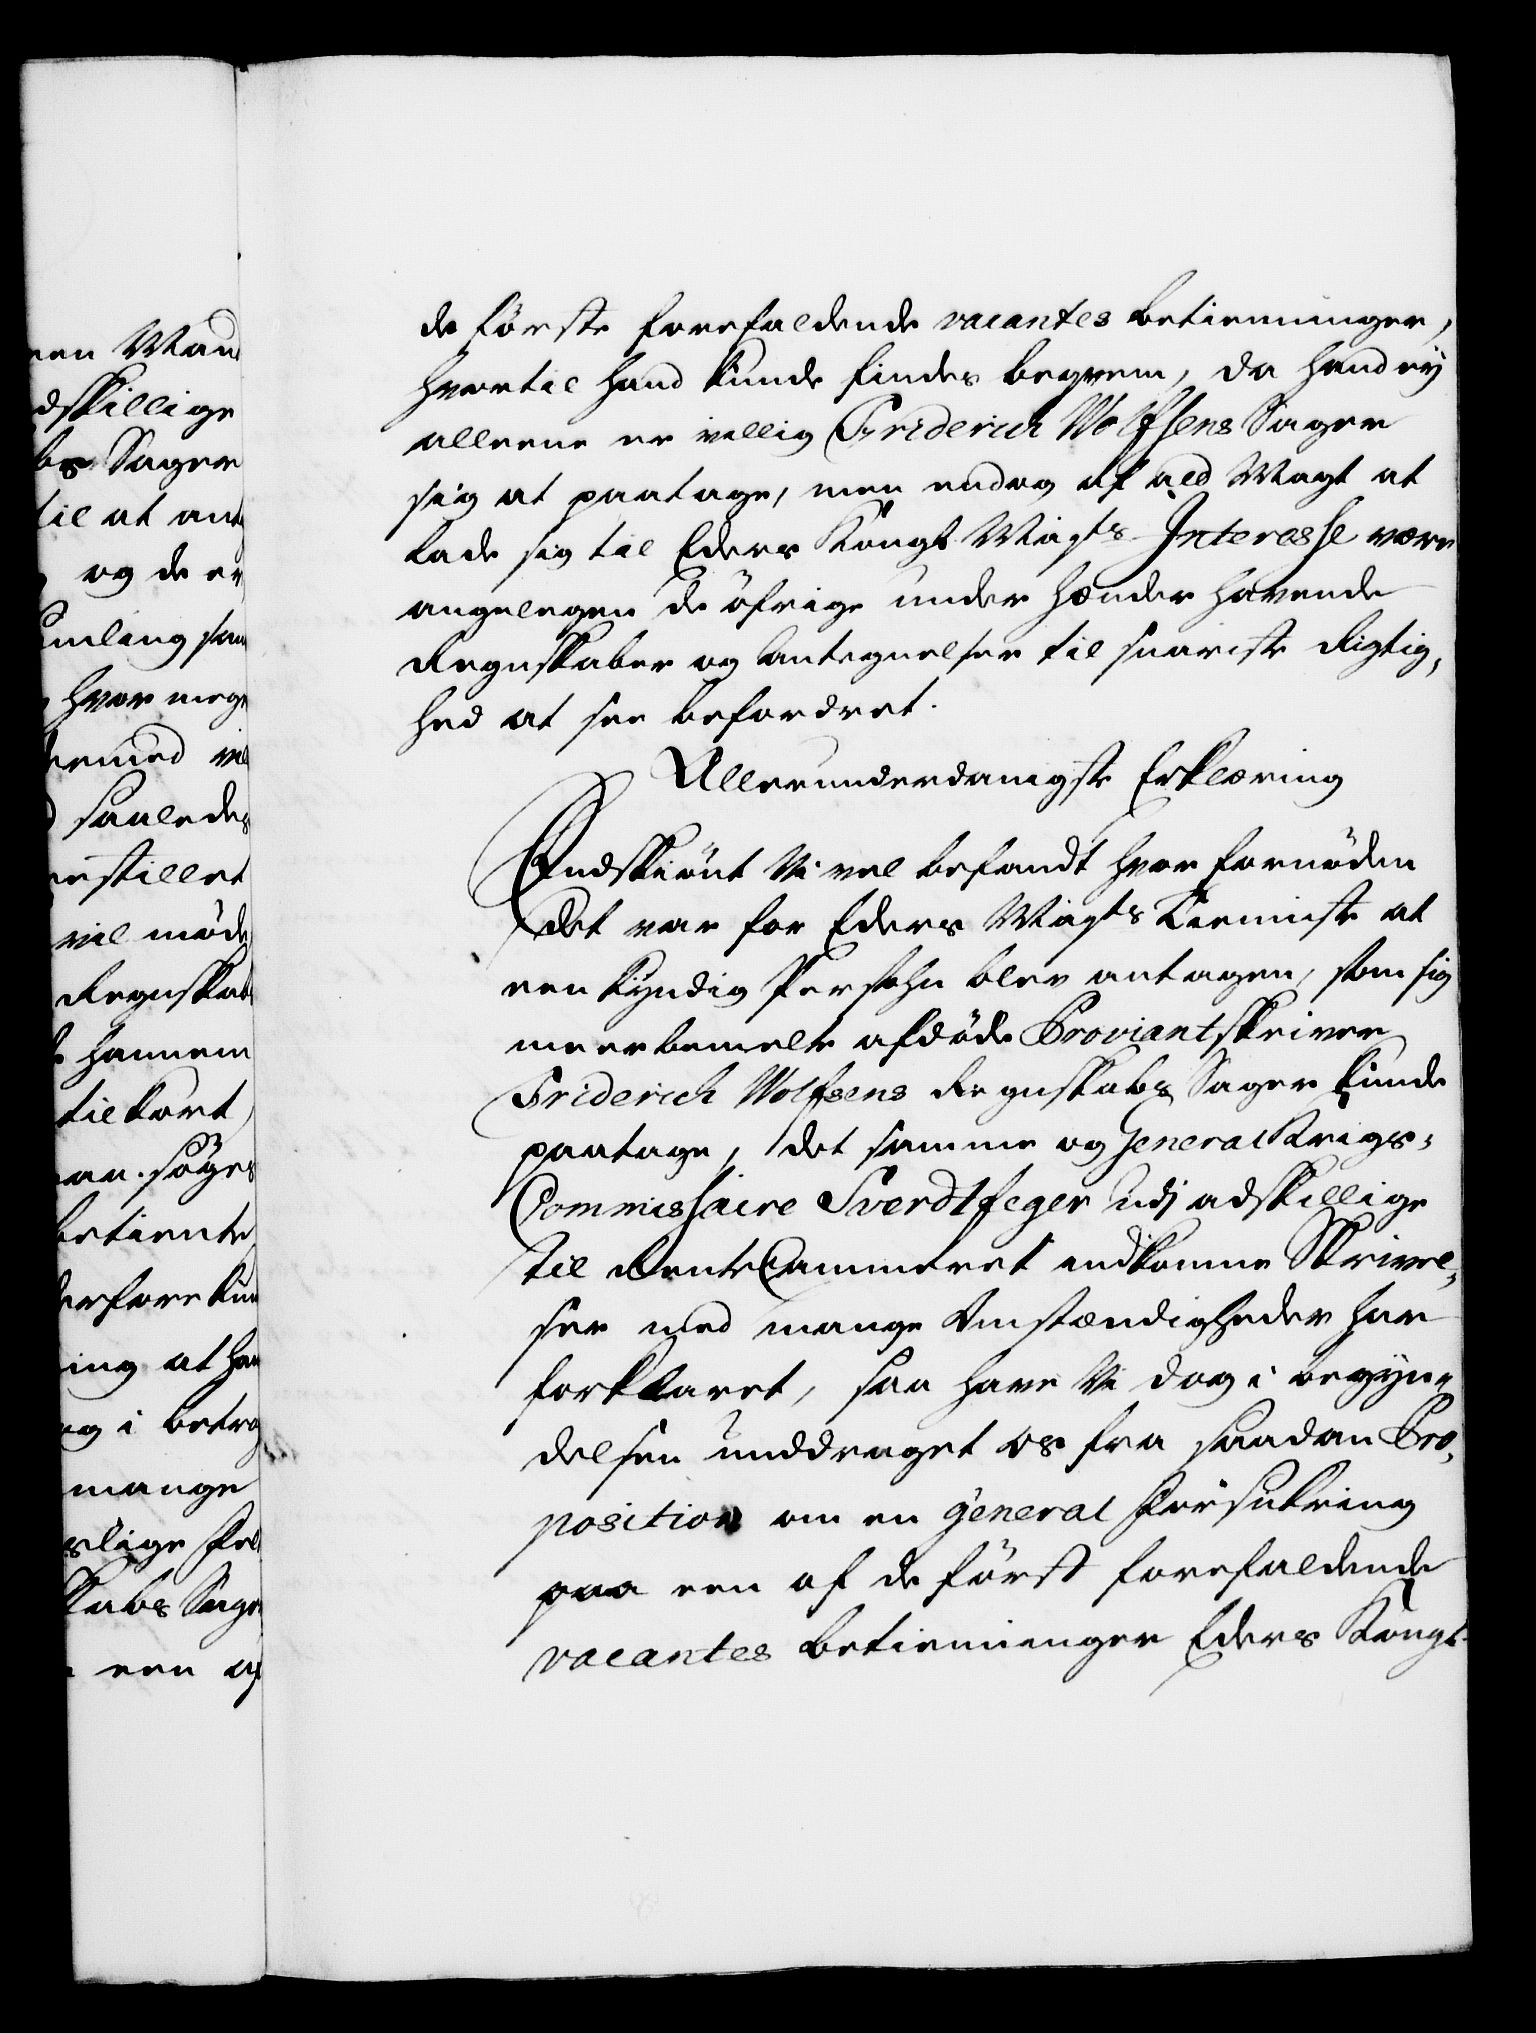 een Mand
dskillige
bs Sager
til at ant
og de er
hvor meg
dermed vil
saaledes
estillet
vil møde
Regnskab
hannem
til kort,
aa. søges
betiente
derfore kun
ing at han
og i betrag
mange
slige Fol
skabs Sage
een af
de förste forefaldende vacantes betienninger,
hvortil hand kunde findes beqvem, da hand ey
alleene er villig Friderich Wolfsens Sager
sig at paatage, men endog af all Magt at
lade sig til Eders Kongl. Mayts Interesse være
angelegen de öfrige under hænder havende
Regnskaber og Antegnelser til snariste Rigtig-
hed at see befordret.
Allerunderdanigste Erklæring
Endskiönt Vi vel befandt hvor fornöden
det var for Eders Mayts Tienniste at
een kyndig Persohn blev antagen, som sig
meerbemelte afdöde Proviantskriver
Friderich Wolfsens Regnskabs Sager kunde
paatage, det samme og General Krigs-
Commissaire Sverdtfeger udj adskillige
til RenteCammeret indkomne Skrivel-
ser med mange Omstændigheder har
forklaret, saa have Vi dog i begyn-
delsen unddraget os fra saadan Pro-
position om en general Forsikring
paa een af de först forefaldende
vacantes betienninger Eders Kongl.